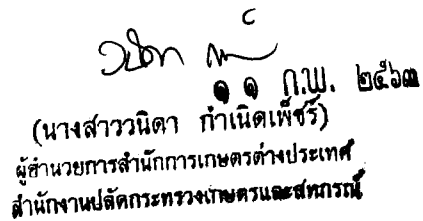 ๑๑ ก.พ. ๒๕๖๓
(นางสาววนิดา กำเนิดเพ็ชร์)
ผู้อำนวยการสำนักการเกษตรต่างประเทศ
สำนักงานปลัดกระทรวงเกษตรและสหกรณ์